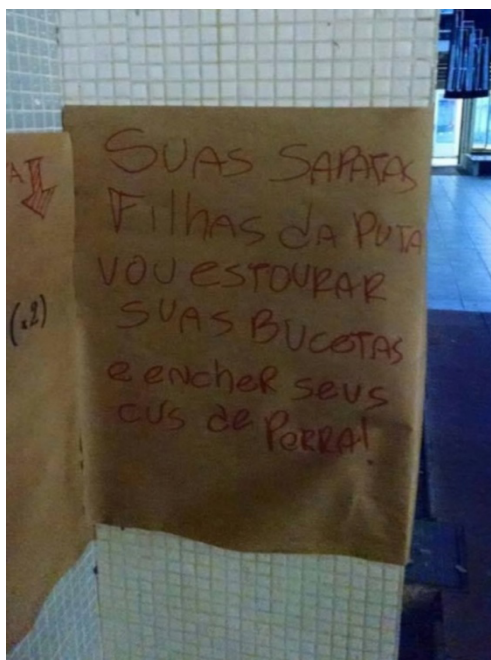 SUAS SAPATAS
FilhAS dA PUTA
VOU eSTOURAR
SUAS BUCETAS
e eNcheR seus
CUS de PORRA!
(x2)